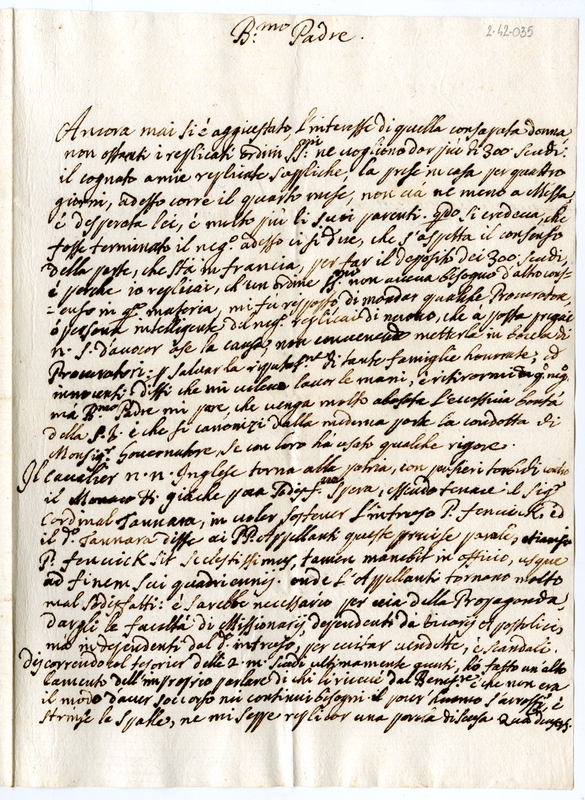 2-42-035
B.mo Padre.
Ancora mai si é aggiustato, l'interesse di quella consaputa donna
non ostanti i replicati ordini SS.mi ne vogliono dar piu di 300 scudi:
il cognato a mie replicate suppliche, la prese in casa per quattro
giorni, adesso corre il quarto mese, non và né meno a Messa
é desperata lei, é molto piú li suoi parenti. Qdo si credeva, che
fosse terminato il neg.o adesso ci si dice, che s'aspetta il consenso
della parte, che stà in francia, per far il deposito dei 300 scudi,
é perche io replicai, ch'un ordine SS.mo non aveva bisogno d'altro cons=
=enso in q.a materia, mi fú risposto di mandar qualche Procuratore,
ó persona intelligente di neg. replicai di nuovo, che a posta pregai
N. S. d'avocar á se la causa, non convenendo metterla in bocca di
Procuratori: p salvar la riputat.ne di tante famiglie honorate, ed
innocenti: dissi che mi volevo lavar le mani, é ritirarmi
ma B.mo Padre mi pare, che venga molto l'eccessiva bontá
della S. J. é che si canonizi dalla medema parte la condotta di
Monsig.r Governatore, se con loro há usato qualche rigore.
Il cavalier n. n. Inglese torna alla patria, con pensieri torbidi contro
il giache poca sodisf.ne spera, essendo tenace il Sig.r
Cardinal Jannara, in voler sostener l'intruso P. Fenwick, ed
il d.o Jannara disse ai PP. Appellanti queste precise parole,
P. Fenwick sit scelestissimus, tamen manebit in officio, usque
ad finem sui quadriennij. onde l'Appellanti tornano molto
mal sodisfatti: é sarebbe necessario per via della Propaganda,
dargli le facoltà di Missionarij, dependenti da Vicarij Apostolici,
ma independenti dal d.o intruso, per evitar vendette, é scandali.
Discorrendo al tesorier delle 2 m: scudi ultimamente havuti, hó fatto un'alto
lamento dell'improprio parlare di chi li riceve dal é che non era
il modo d'aver soccorso nei continui bisogni il pover huomo s'arrossí, é
strinse le spalle, ne mi seppe replicar una parola di scusa